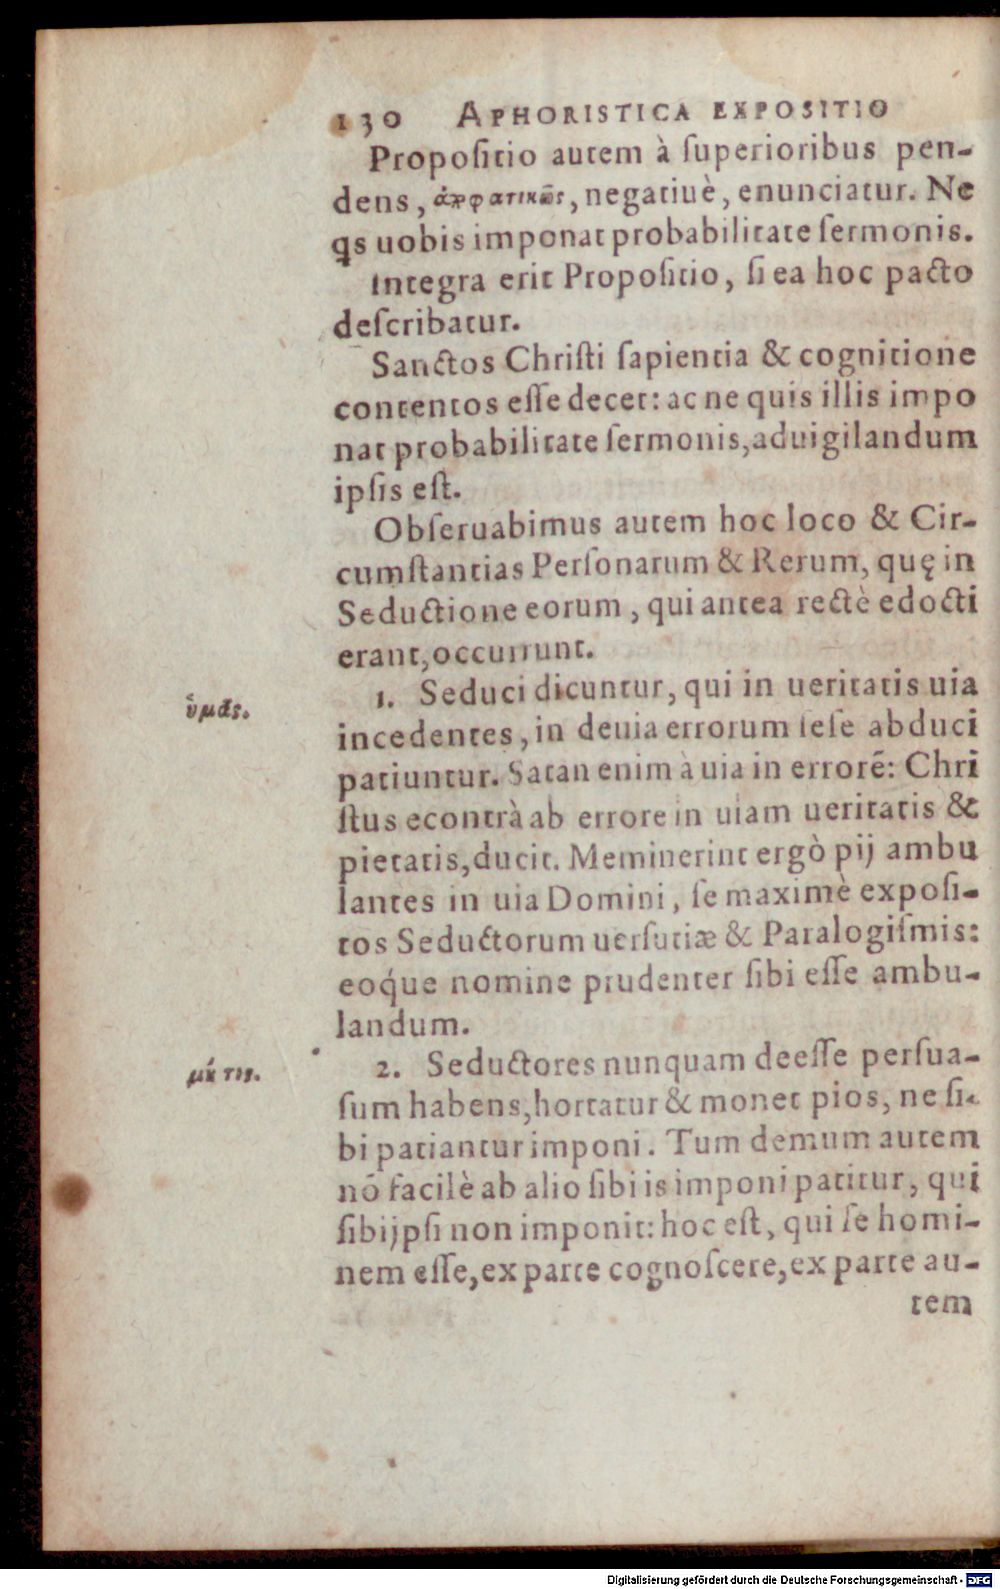 130 APHORISTICA EXPOSITIO
Propoſitio autem à ſuperioribus pen-
dens, negatiuè, enunciatur. Ne
qs uobis imponat probabilitate ſermonis.
Integra erit Propoſitio, ſi ea hoc pacto
deſcribatur.
Sanctos Chriſti ſapientia & cognitione
contentos eſſe decet: ac ne quis illis impo
nat probabilitate ſermonis, aduigilandum
ipſis eſt.
Obſeruabimus autem hoc loco & Cir-
cumſtantias Perſonarum & Rerum, quę in
Seductione eorum, qui antea rectè edocti
erant, occurrunt.
ὑμᾶς.
1. Seduci dicuntur, qui in ueritatis uia
incedentes, in deuia errorum ſeſe abduci
patiuntur. Satan enim à uia in errorē: Chri
ſtus econtrà ab errore in uiam ueritatis &
pietatis, ducit. Meminerint ergò pij ambu
lantes in uia Domini, ſe maximè expoſi-
tos Seductorum uerſutiæ & Paralogiſmis:
eoq́ue nomine prudenter ſibi eſſe ambu-
landum.
μή τις.
2. Seductores nunquam deeſſe perſua-
ſum habens, hortatur & monet pios, ne ſi-
bi patiantur imponi. Tum demum autem
nō facilè ab alio ſibi is imponi patitur, qui
ſibijpſi non imponit: hoc eſt, qui ſe homi-
nem eſſe, ex parte cognoſcere, ex parte au-
tem
Digitalisierung gefördert durch die Deutsche Forschungsgemeinschaft - DFG